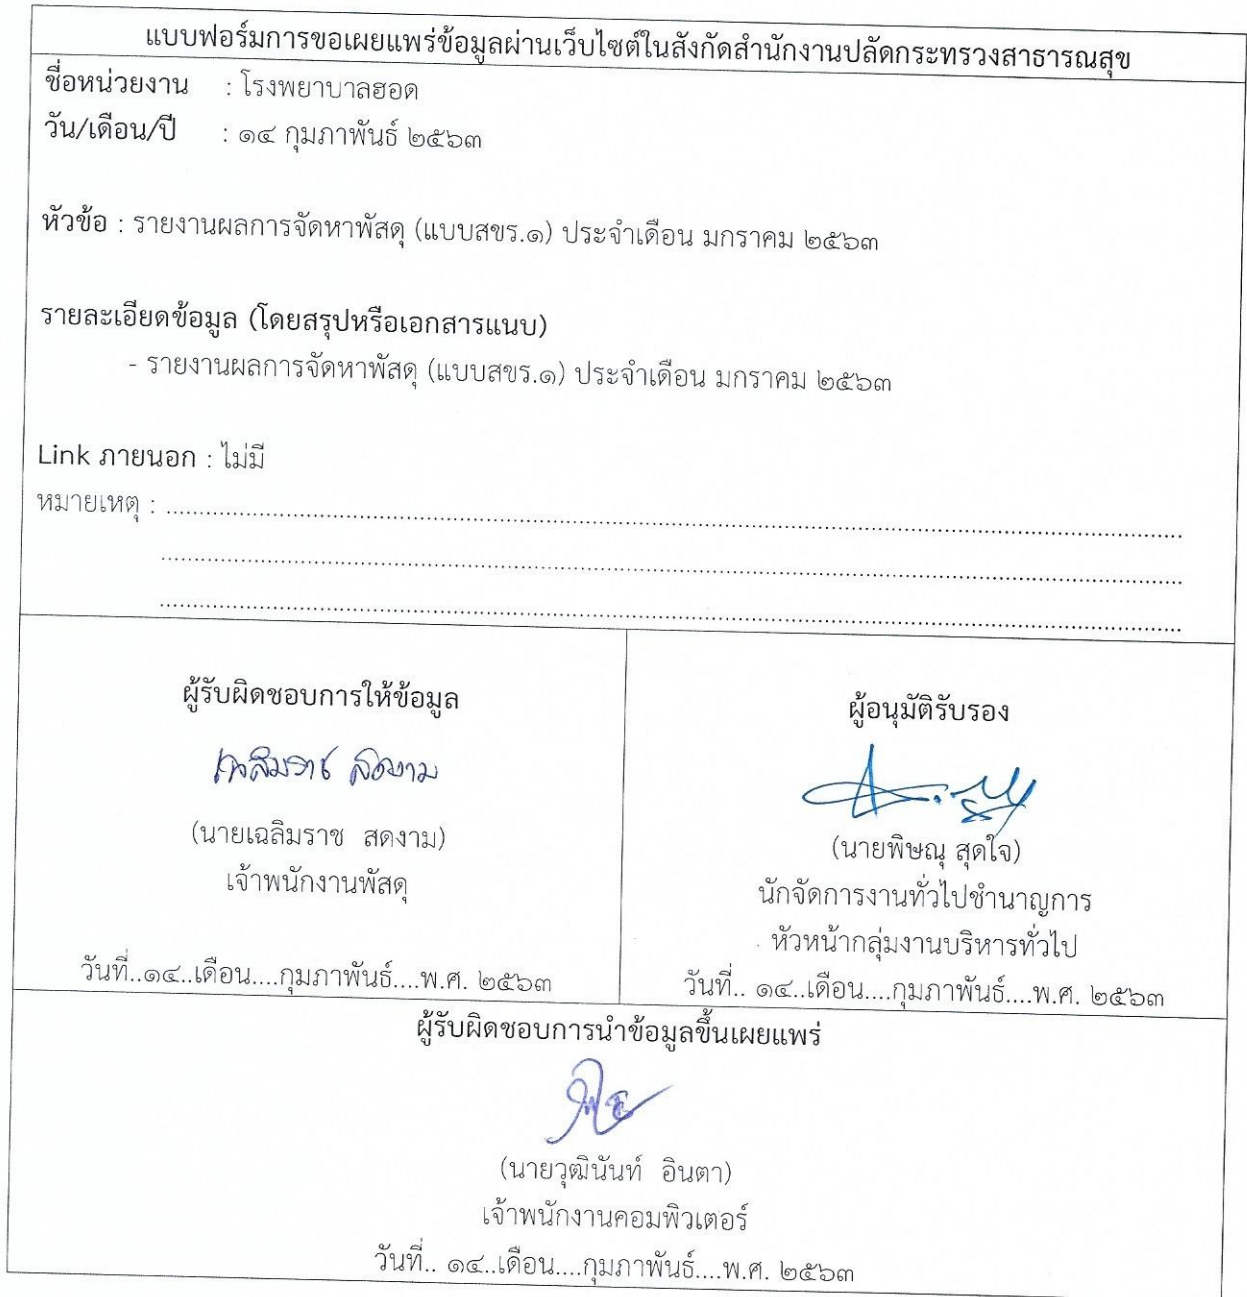 แบบฟอร์มการขอเผยแพร่ข้อมูลผ่านเว็บไซต์ในสังกัดสำนักงานปลัดกระทรวงสาธารณสุข
ชื่อหน่วยงาน : โรงพยาบาลฮอด
วัน/เดือน/ปี : ๑๔ กุมภาพันธ์ ๒๕๖๓
หัวข้อ : รายงานผลการจัดหาพัสดุ (แบบสขร.๑) ประจำเดือน มกราคม ๒๕๖๓
รายละเอียดข้อมูล (โดยสรุปหรือเอกสารแนบ)
- รายงานผลการจัดหาพัสดุ (แบบสขร.๑) ประจำเดือน มกราคม ๒๕๖๓
Link ภายนอก : ไม่มี
หมายเหตุ : ....................
ผู้รับผิดชอบการให้ข้อมูล
เฉลิมราช สดงาม
(นายเฉลิมราช สดงาม)
เจ้าพนักงานพัสดุ
วันที่..๑๔..เดือน....กุมภาพันธ์....พ.ศ. ๒๕๖๓
ผู้อนุมัติรับรอง
(นายพิษณุ สุดใจ)
นักจัดการงานทั่วไปชำนาญการ
หัวหน้ากลุ่มงานบริหารทั่วไป
วันที่.. ๑๔..เดือน....กุมภาพันธ์....พ.ศ. ๒๕๖๓
ผู้รับผิดชอบการนำข้อมูลขึ้นเผยแพร่
(นายวุฒินันท์ อินตา)
เจ้าพนักงานคอมพิวเตอร์
วันที่.. ๑๔..เดือน....กุมภาพันธ์....พ.ศ. ๒๕๖๓